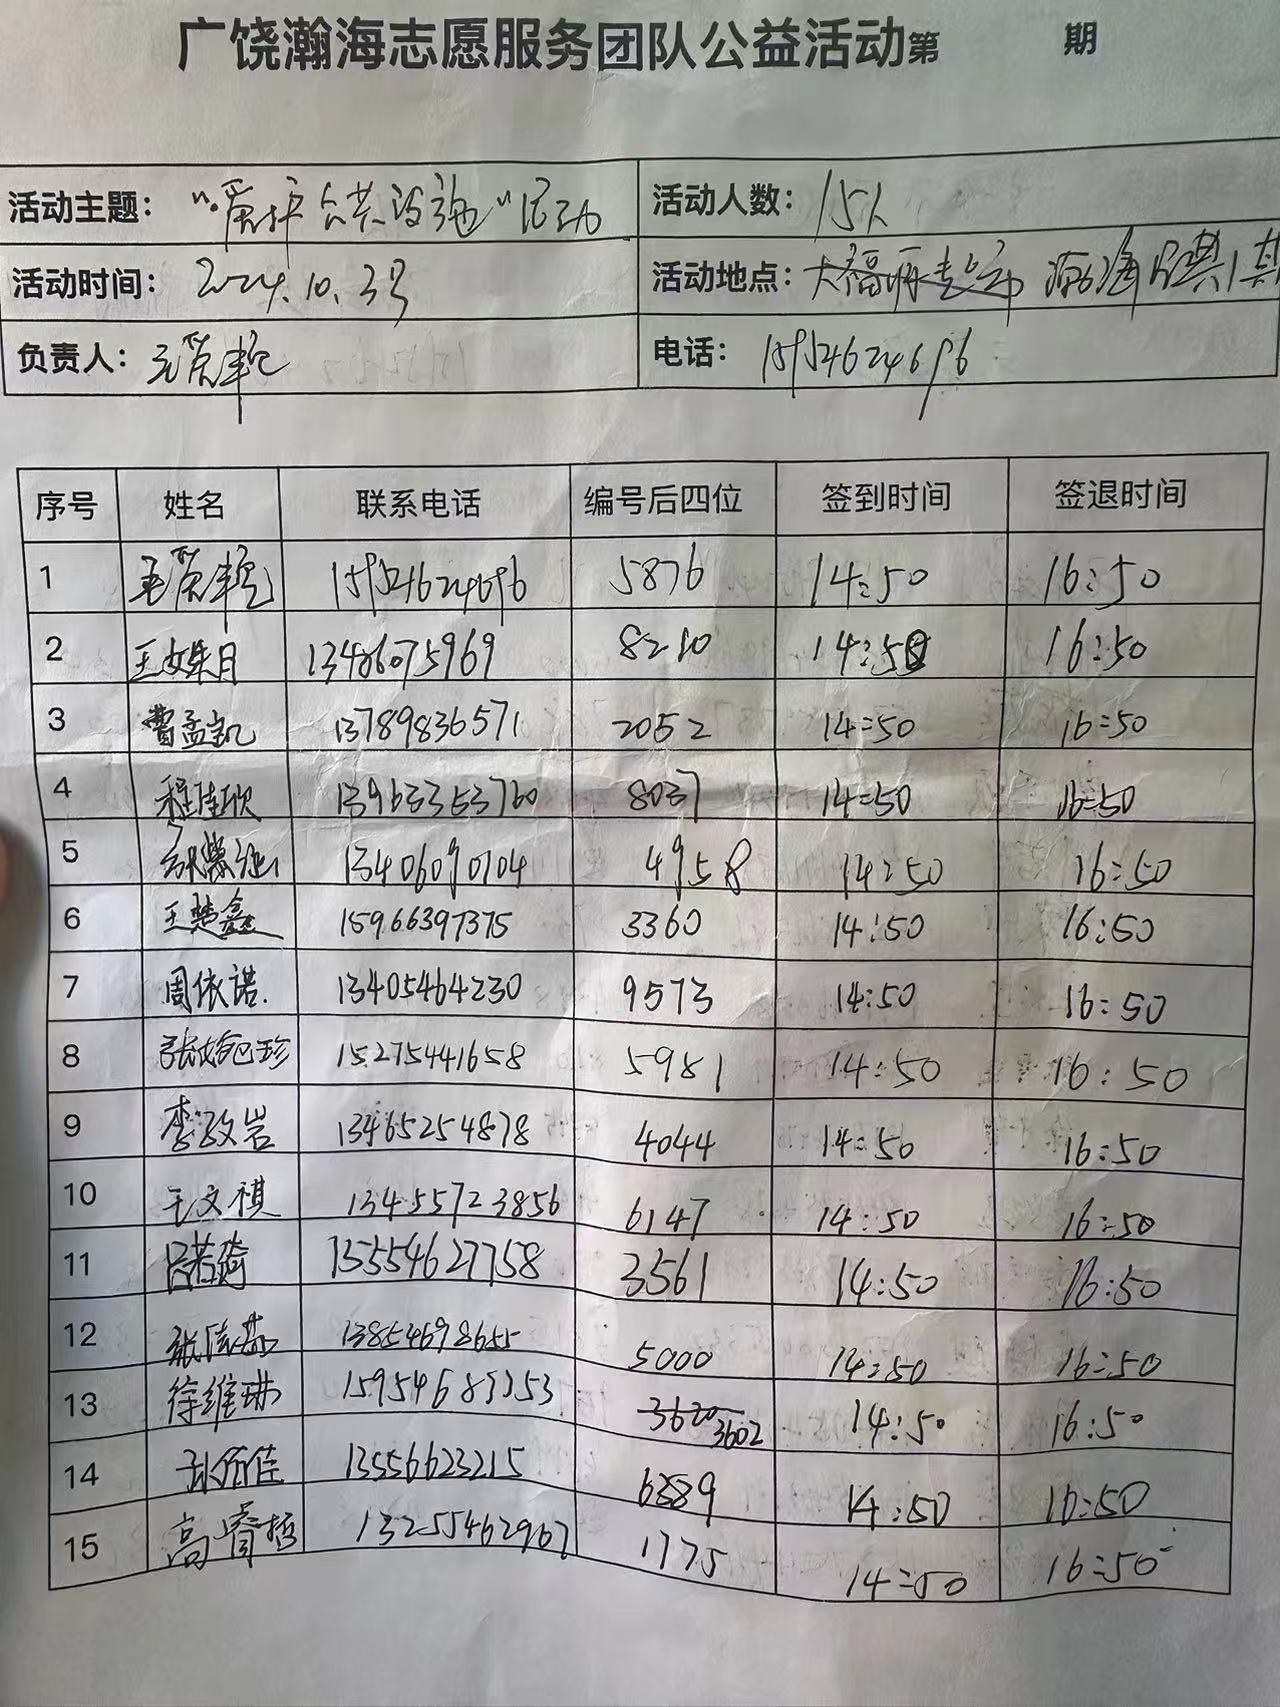 广饶瀚海志愿服务团队公益活动第 期
活动主题：“爱护公共设施”活动 活动人数：15人
活动时间：2024.10.3号 活动地点：瀚海
负责人： 电话：
序号 姓名 联系电话 编号后四位 签到时间 签退时间
1 5876 14:50 16:50
2 13486075969 8210 14:50 16:50
3 曹孟凯 13789836571 2052 14:50 16:50
4 程佳欣 8037 14:50 16:50
5 13406090704 4958 14:50 16:50
6 王楚鑫 15966397375 3360 14:50 16:50
7 周依诺 13405464230 9573 14:50 16:50
8 15275441658 5981 14:50 16:50
9 李政岩 13465254878 4044 14:50 16:50
10 王文祺 13455723856 6147 14:50 16:50
11 吕若 15554627758 3561 14:50 16:50
12 13854698655 5000 14:50 16:50
13 徐维琳 3602 14:50 16:50
14 13556623215 14:50 16:50
15 高睿哲 13255462967 1775 14:50 16:50